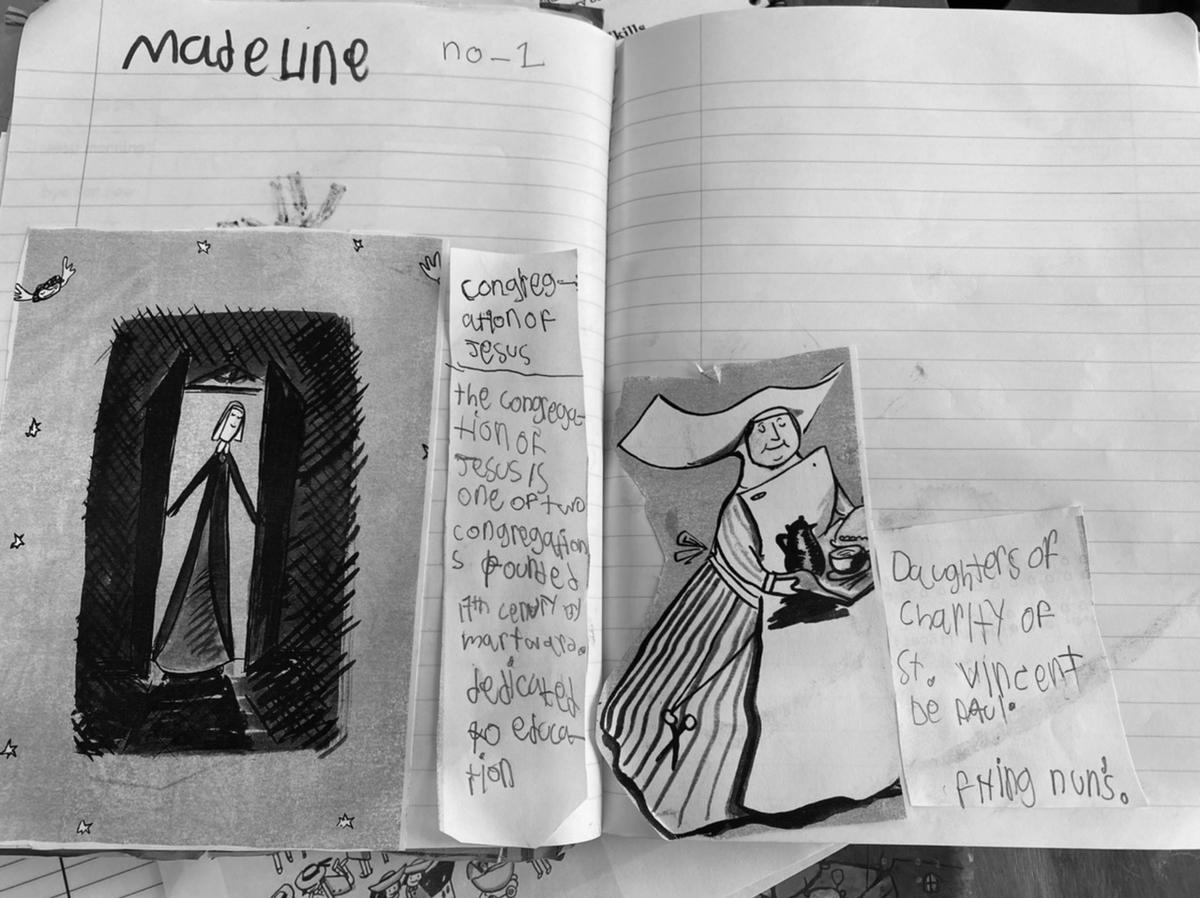 kills
madeline no-1
congreg-
ation of
Jesus
the congrega-
tion of
Jesus is
one of two
congregation
s founded
17th century by
dedicated
to educa-
tion
Daughters of
Charity of
St. Vincent
De Paul.
flying nun's.